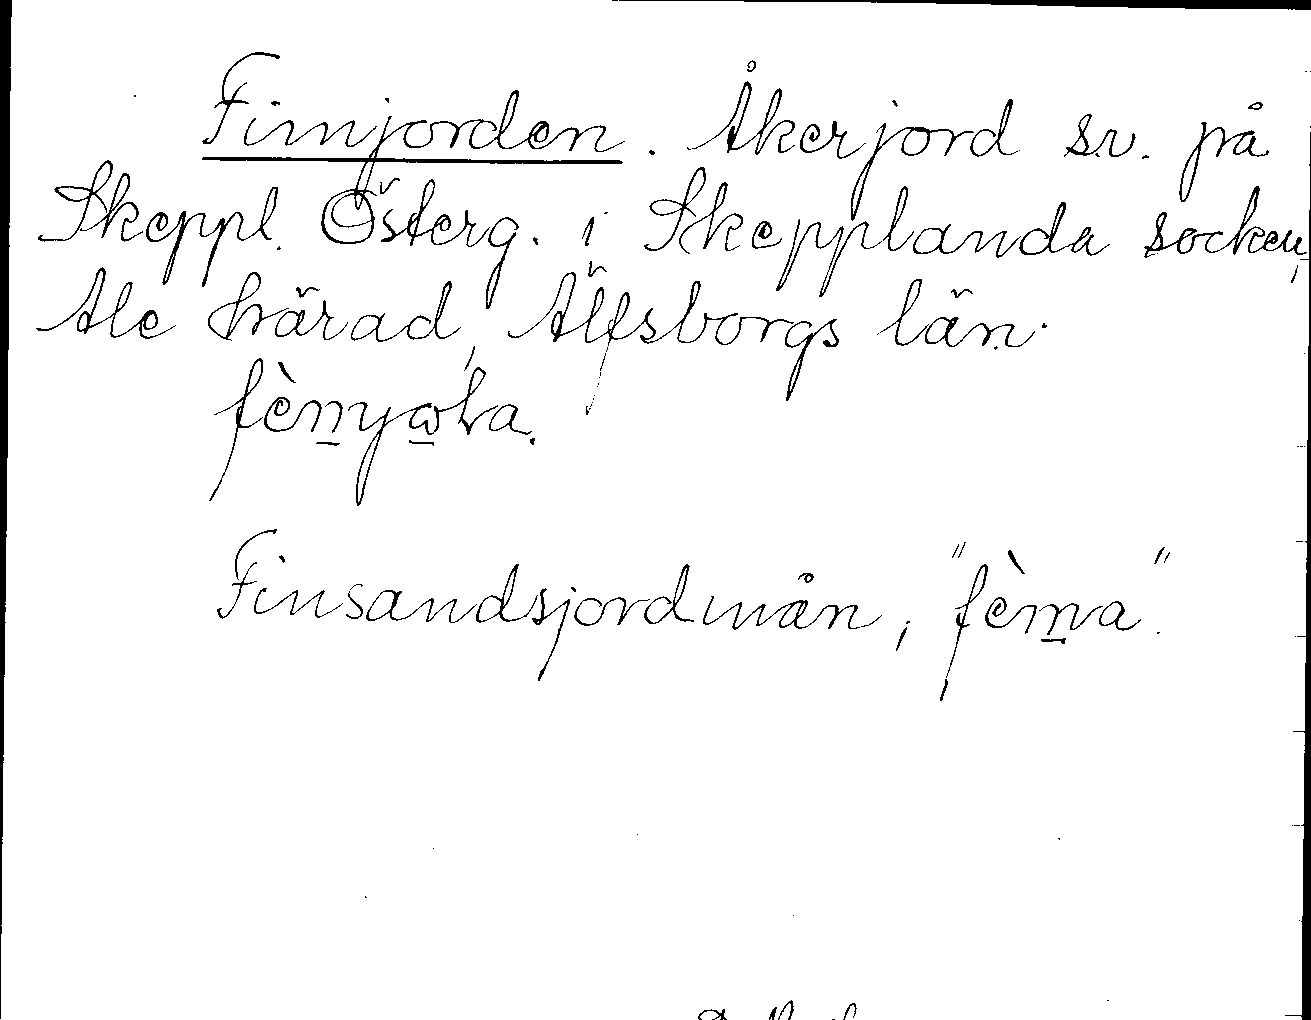 Finnjorden. Åkerjord s.v. på
Skeppl. Österg. i Skepplanda socken,
Ale härad, Älfsborgs län.
fènyωka.
Finsandsjordmån, "fènna".